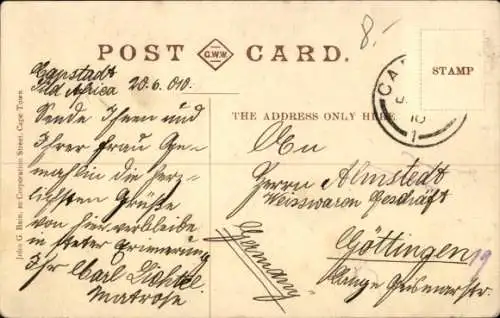 8.-
POST G.W.W. CARD.
Capstadt
Süd Africa 20.6.010.
Sende Ihnen und
Ihrer Frau Ge-
mahlin die herz-
lichsten Grüße
von hier verbleibe
in steter Erinnerung
Ihr Carl
Matrose
John G. Bain, Corporation Street, Cape Town.
STAMP
CA
10
1
THE ADDRESS ONLY HERE
An
Herrn Almstedt
Weisswaren Geschäft
Göttingen
Lange Geismarstr.
Germany
19